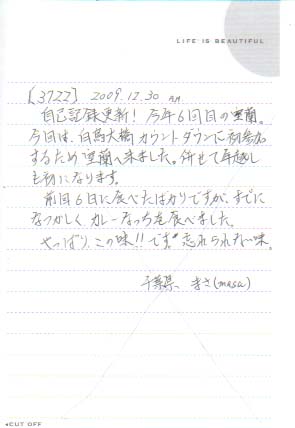 LIFE IS BEAUTIFUL
[3722] 2009.12.30
自己記録更新! 今年6回目の室蘭。
今回は、白鳥大橋カウントダウンに初参加
するため室蘭へ来ました。併せて年越し
も初になります。
前回6日に食べたばかりですが、すでに
なつかしく、カレーなっちを食べました。
やっぱり、この味!!です。忘れられない味。
千葉県 まさ(masa)
◂CUT OFF